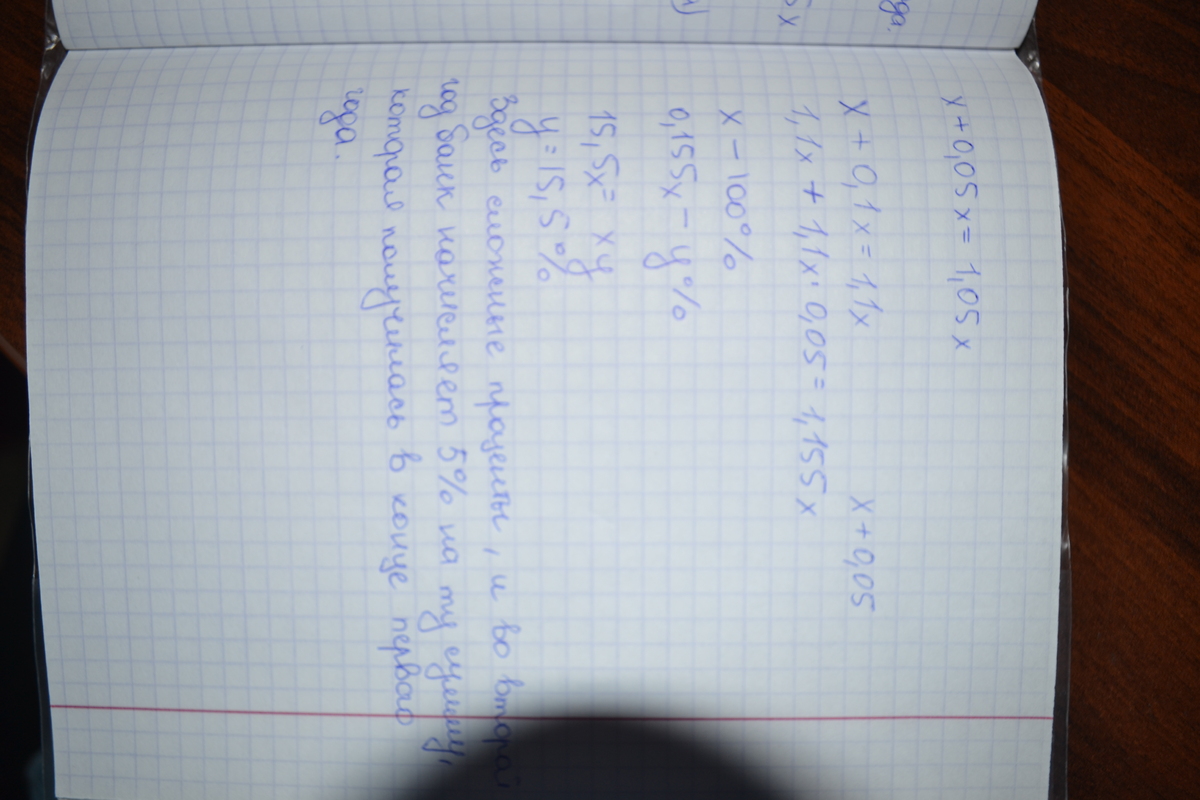 x + 0,05x = 1,05x
x + 0,1x = 1,1x x + 0,05
1,1x + 1,1x · 0,05 = 1,155x
x – 100%
0,155x – y%
15,5x = xy
y = 15,5%
Здесь сложные проценты, и во второй
год банк начисляет 5% на ту сумму,
которая получилась в конце первого
года.